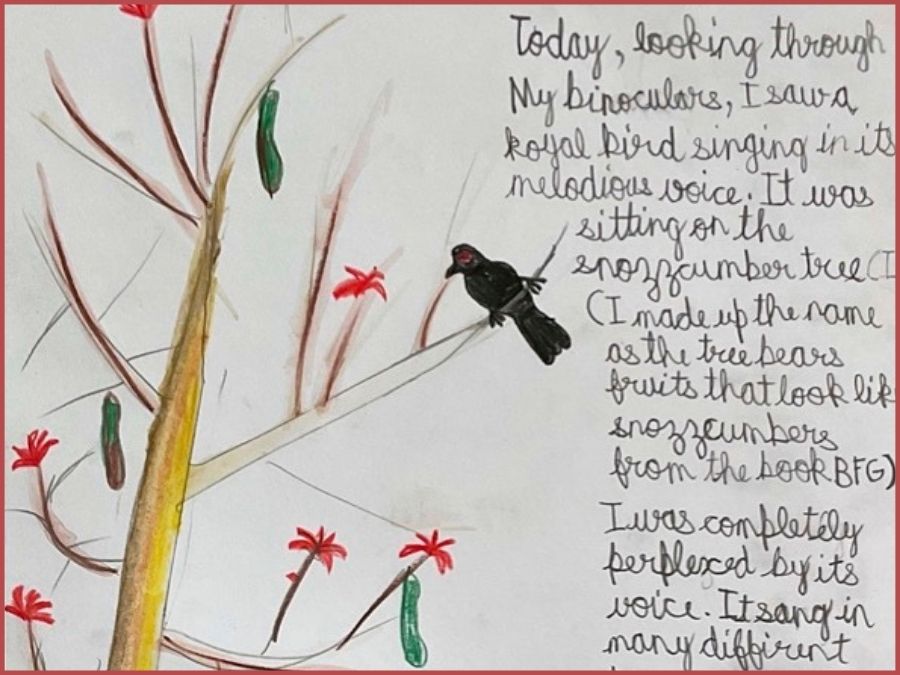 Today, looking through
My binoculars, I saw a
koyal bird singing in its
melodious voice. It was
sitting on the
snozzcumber tree (I
(I made up the name
as the tree bears
fruits that look lik
snozzcumbers
from the book BFG)
I was completely
perplexed by its
voice. It sang in
many diffirent